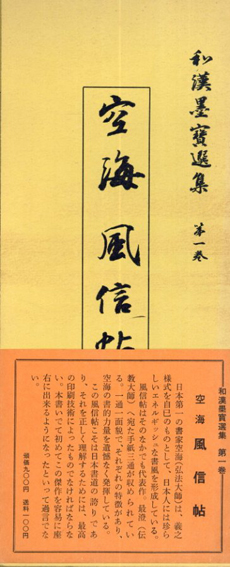 和漢墨寶選集 第一巻
空海 風信帖
和漢墨寶選集 第一巻
空海 風信帖
日本第一の書家空海(弘法大師)は、羲之
様式を自己のものとして、日本人には珍ら
しいエネルギッシュな書風を形成している。
風信帖はそのなかでも代表作、最澄(伝
教大師)へ宛た手紙三通が収められてい
る。一通一面貌で、それぞれの特徴があり、
空海の書的力量を遺憾なく発揮している。
この風信帖こそは日本書道の誇りであ
り、それを正しく理解するためには、最高
の印刷技術によったものでなければならな
い。本書いでて初めてこの傑作を容易に座
右に出来るようになったといって過言でな
い。
価価九〇〇円 送料一〇〇円